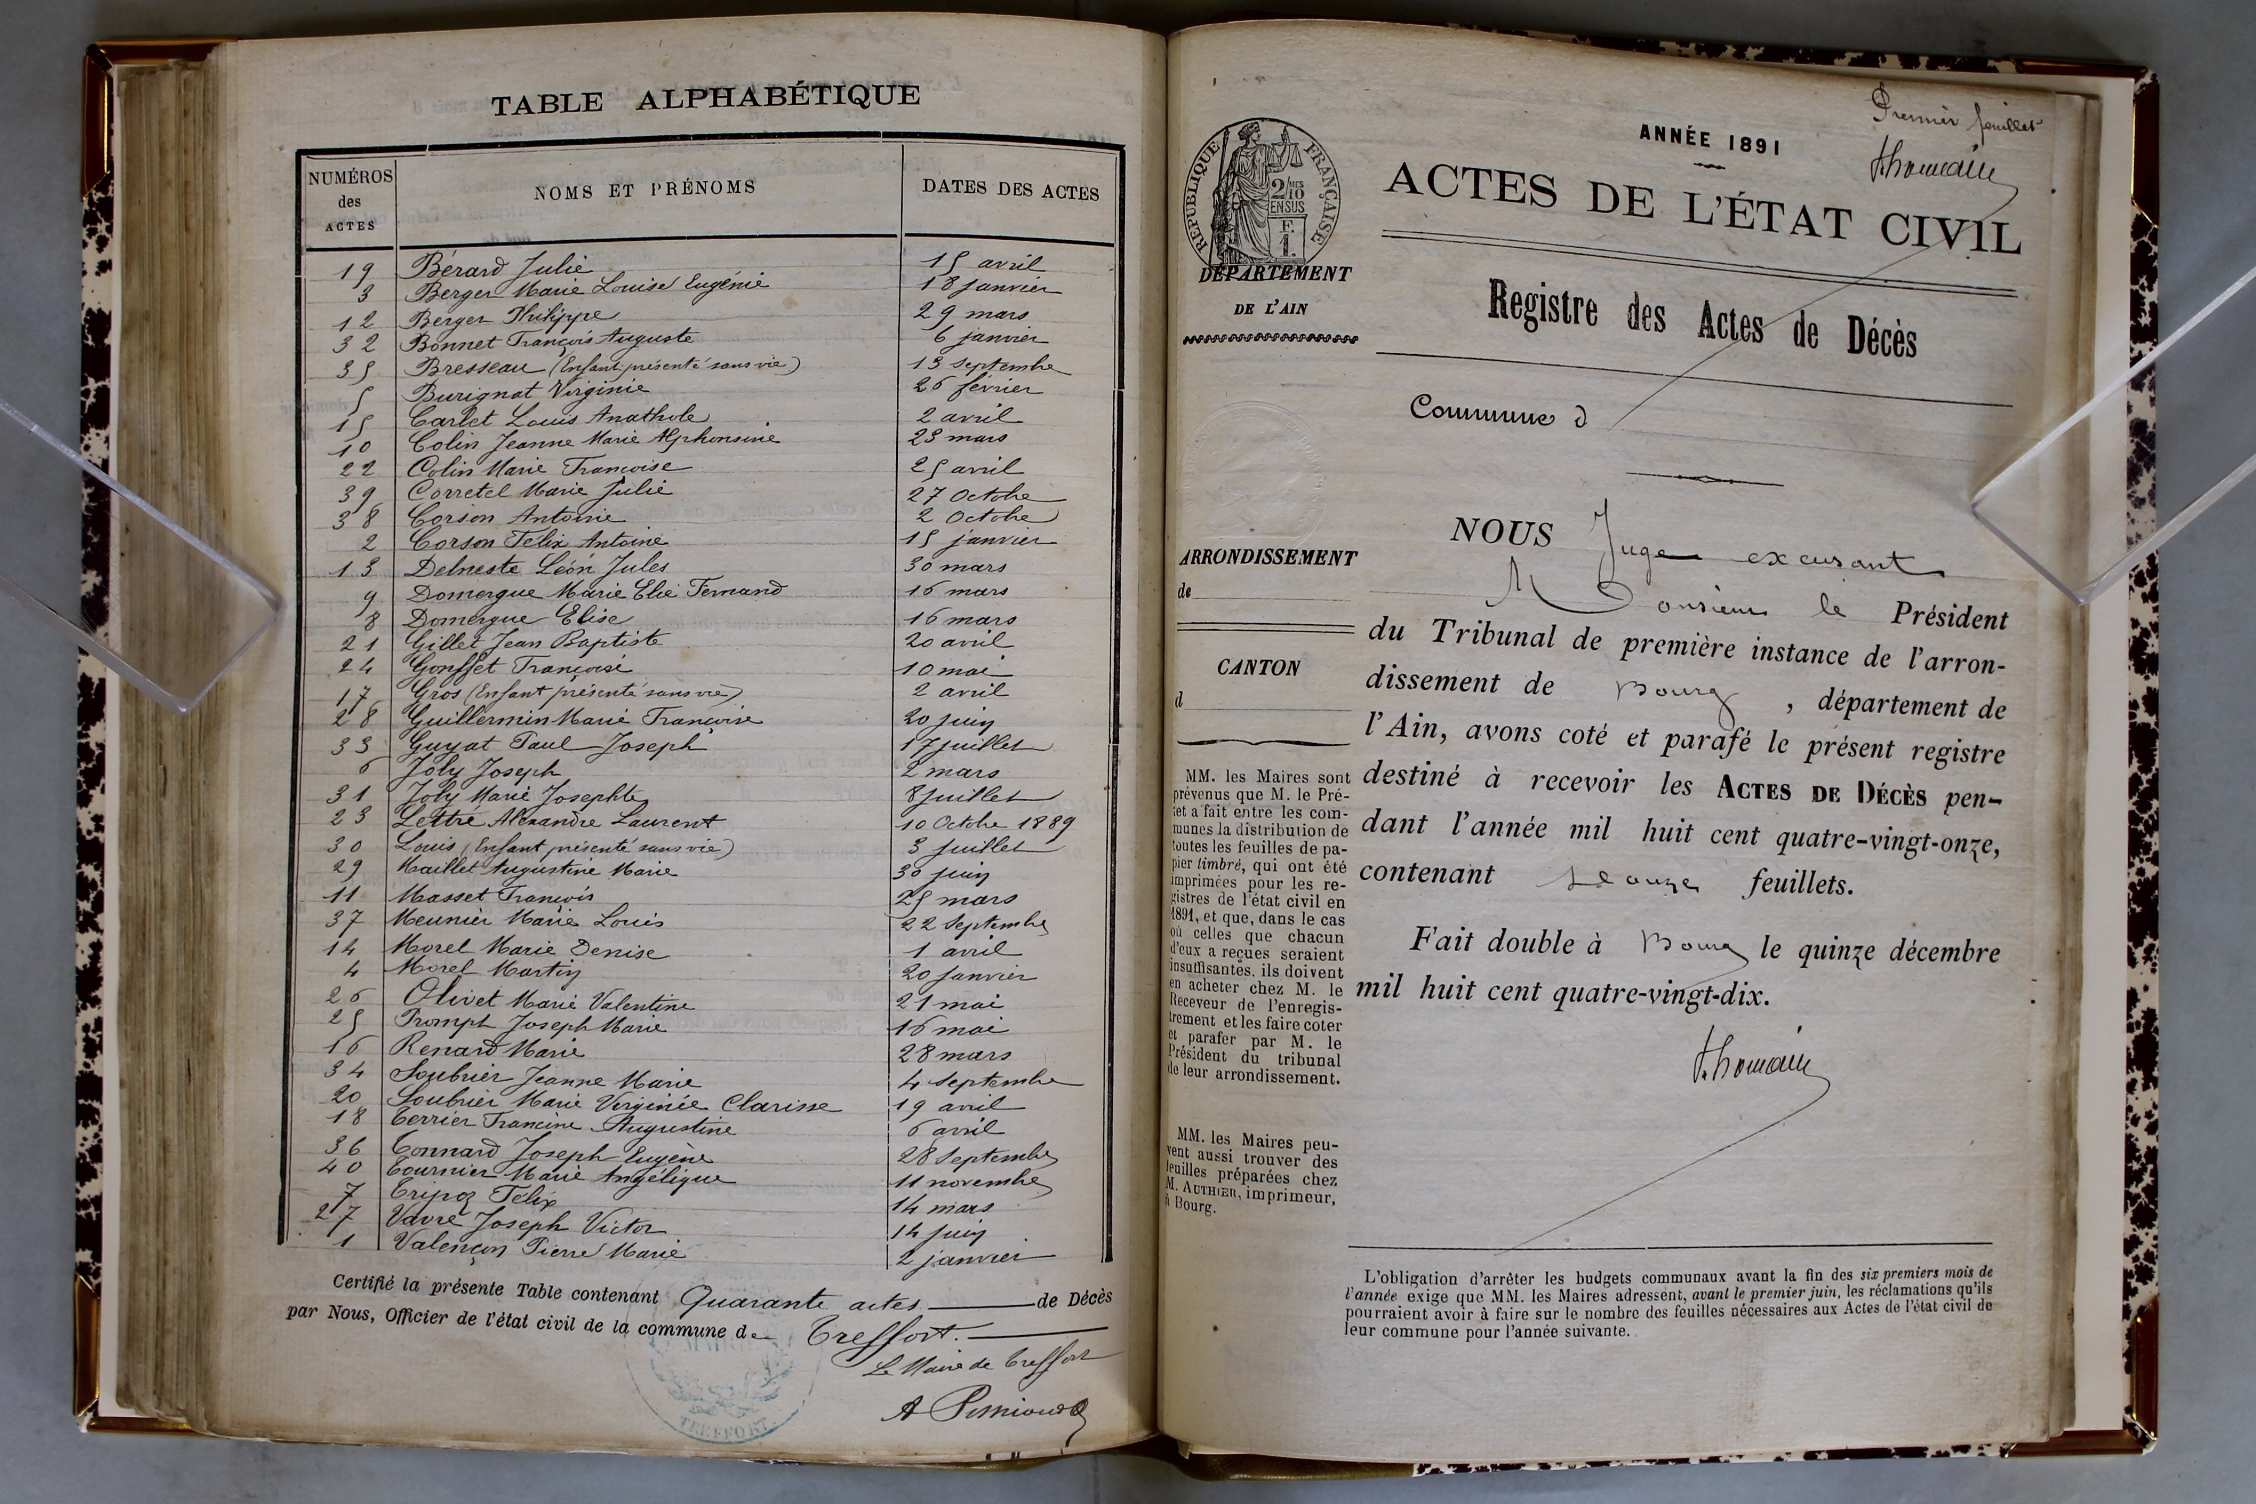 TABLE ALPHABÉTIQUE
NUMÉROS des ACTES NOMS ET PRÉNOMS DATES DES ACTES
19 Bérard Julie 15 avril
3 Berger Marie Louise Eugénie 18 janvier
12 Berger Philippe 29 mars
32 Bonnet François Auguste 6 janvier
35 Bresseau (Enfant présenté sans vie) 13 septembre
5 Burignat Virginie 26 février
15 Carlet Louis Anathole 2 avril
10 Colin Jeanne Marie Alphonsine 23 mars
22 Colin Marie Françoise 25 avril
39 Corretel Marie Julie 27 Octobre
38 Corson Antoine 2 Octobre
2 Corson Felix Antoine 15 janvier
13 Delneste Léon Jules 30 mars
9 Domergue Marie Elie Fernand 16 mars
8 Domergue Elise 16 mars
21 Gillet Jean Baptiste 20 avril
24 Gonffet Françoise 10 mai
17 Gros (Enfant présenté sans vie) 2 avril
28 Guillermin Marie Françoise 20 juin
33 Guyat Paul Joseph 17 juillet
6 Joly Joseph 2 mars
31 Joly Marie Josephte 8 juillet
23 Lettre Alexandre Laurent 10 Octobre 1889
30 Louis (Enfant présenté sans vie) 3 juillet
29 Maillet Augustine Marie 30 juin
11 Masset François 25 mars
37 Meunier Marie Louis 22 Septembre
14 Morel Marie Denise 1 avril
4 Morel Martin 20 janvier
26 Olivet Marie Valentine 21 mai
25 Prompt Joseph Marie 16 mai
16 Renard Marie 28 mars
34 Soubrier Jeanne Marie 4 septembre
20 Soubrier Marie Virginie Clarisse 19 avril
18 Terrier Francine Augustine 6 avril
36 Tonnard Joseph Eugène 28 Septembre
40 Tournier Marie Angélique 11 novembre
7 Tripoz Félix 14 mars
27 Vavre Joseph Victor 14 juin
1 Valençon Pierre Marie 2 janvier
Certifié la présente Table contenant Quarante actes de Décès
par Nous, Officier de l'état civil de la commune de Treffort.
Le Maire de Treffort
MAIRIE
TREFFORT
Premier feuillet
Thomain
ANNÉE 1891
ACTES DE L'ÉTAT CIVIL
RÉPUBLIQUE FRANÇAISE
2/10 MES
EN SUS
F.
1.
DÉPARTEMENT
DE L'AIN
Registre des Actes de Décès
Commune d
ARRONDISSEMENT
de
CANTON
d
MM. les Maires sont
prévenus que M. le Pré-
fet a fait entre les com-
munes la distribution de
toutes les feuilles de pa-
pier timbré, qui ont été
imprimées pour les re-
gistres de l'état civil en
1891, et que, dans le cas
où celles que chacun
d'eux a reçues seraient
insuffisantes, ils doivent
en acheter chez M. le
Receveur de l'enregis-
trement et les faire coter
et parafer par M. le
Président du tribunal
de leur arrondissement.
MM. les Maires peu-
vent aussi trouver des
feuilles préparées chez
M. AUTHIER, imprimeur,
à Bourg.
NOUS Juge excusant
Monsieur le Président
du Tribunal de première instance de l'arron-
dissement de Bourg, département de
l'Ain, avons coté et parafé le présent registre
destiné à recevoir les ACTES DE DÉCÈS pen-
dant l'année mil huit cent quatre-vingt-onze,
contenant feuillets.
Fait double à Bourg le quinze décembre
mil huit cent quatre-vingt-dix.
Thomain
L'obligation d'arrêter les budgets communaux avant la fin des six premiers mois de
l'année exige que MM. les Maires adressent, avant le premier juin, les réclamations qu'ils
pourraient avoir à faire sur le nombre des feuilles nécessaires aux Actes de l'état civil de
leur commune pour l'année suivante.